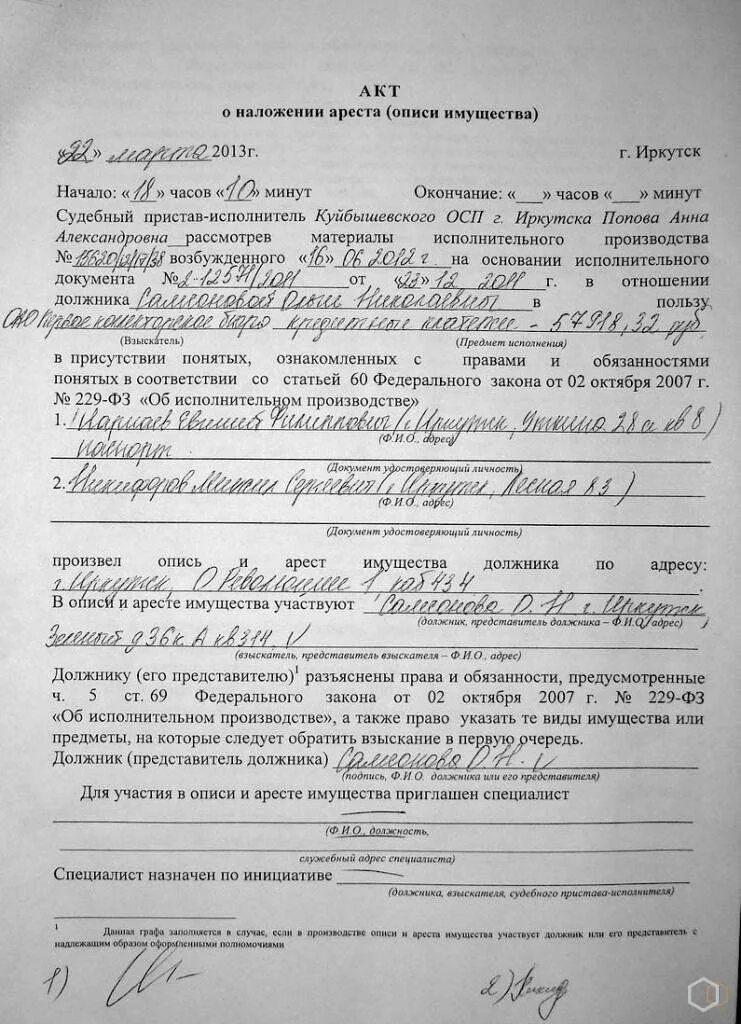 АКТ
о наложении ареста (описи имущества)
«22» марта 2013г. г. Иркутск
Начало: «18» часов «10» минут Окончание: «___» часов «___» минут
Судебный пристав-исполнитель Куйбышевского ОСП г. Иркутска Попова Анна
Александровна рассмотрев материалы исполнительного производства
№15620/12/17/38 возбужденного «16» 06.2012 г. на основании исполнительного
документа №2-12571/2011 от «23» 12 2011 г. в отношении
должника Самсоновой Ольги Николаевны в пользу
ОАО Первое коллекторское бюро кредитные платежи - 57918,32 руб.
(Взыскатель) (Предмет исполнения)
в присутствии понятых, ознакомленных с правами и обязанностями
понятых в соответствии со статьей 60 Федерального закона от 02 октября 2007 г.
№ 229-ФЗ «Об исполнительном производстве»
1. Филиппович г. Иркутск, Уткина 28а кв 8)
(Ф.И.О., адрес)
паспорт
(Документ удостоверяющий личность)
2. Никифоров Максим Сергеевич г. Иркутск, Лесная
(Ф.И.О., адрес)
(Документ удостоверяющий личность)
произвел опись и арест имущества должника по адресу:
г. Иркутск, О Революции 1 каб 434
В описи и аресте имущества участвуют Самсонова О. Н г. Иркутск,
(должник, представитель должника – Ф.И.О., адрес)
Зеленый д36 к. А кв314. V
(взыскатель, представитель взыскателя – Ф.И.О., адрес)
Должнику (его представителю)1 разъяснены права и обязанности, предусмотренные
ч. 5 ст. 69 Федерального закона от 02 октября 2007 г. № 229-ФЗ
«Об исполнительном производстве», а также право указать те виды имущества или
предметы, на которые следует обратить взыскание в первую очередь.
Должник (представитель должника) Самсонова О.Н. V
(подпись, Ф.И.О. должника или его представителя)
Для участия в описи и аресте имущества приглашен специалист
(Ф.И.О., должность,
служебный адрес специалиста)
Специалист назначен по инициативе
(должника, взыскателя, судебного пристава-исполнителя)
1 Данная графа заполняется в случае, если в производстве описи и ареста имущества участвует должник или его представитель с
надлежащим образом оформленными полномочиями
1) 2)